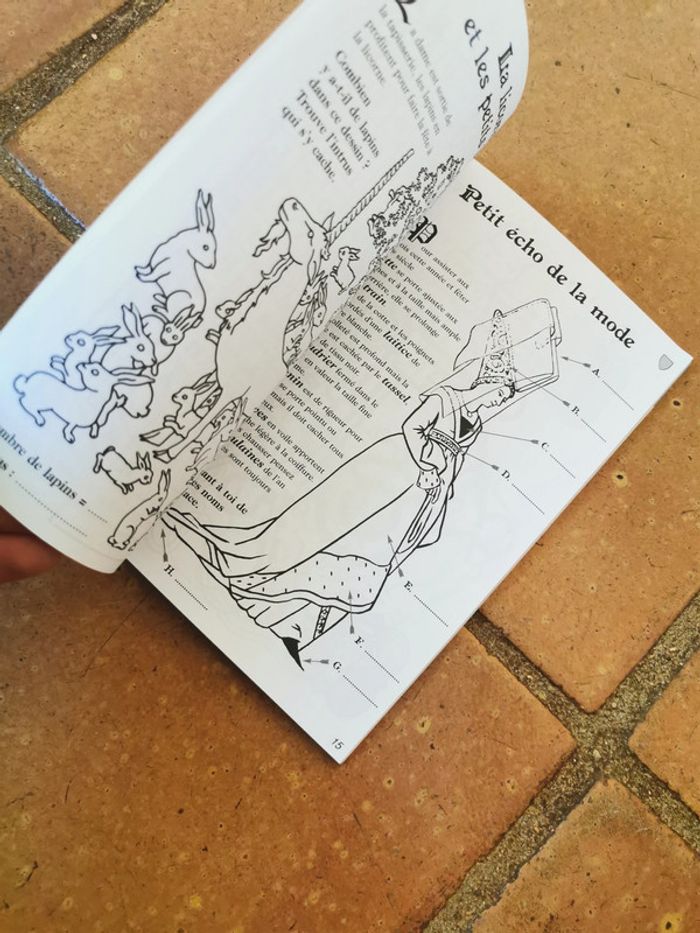 La lico
et les petit
a dame est sortie de
la tapisserie, les lapins en
profitent pour faire la fête à
la licorne.
Combien
y a-t-il de lapins
dans ce dessin ?
Trouve l'intrus
qui s'y cache.
mbre de lapins = ......
Petit écho de la mode
Pour assister aux
ois cette année et fêter
siècle
tte se porte ajustée aux
hes et à la taille mais ample
rrière, elle se prolonge
train.
de la cotte et les poignets
rdés d'une laitice de
e blanche.
olleté est profond mais la
est cachée par le tassel
de tissu noir.
drier fermé dans le
en valeur la taille fine
me.
nin est de rigueur pour
se porte pointu ou
mais il doit cacher tous
ux.
es en voile apportent
he légère à la coiffure.
s chausser, pensez
ulaines de l'an
es sont toujours
ant à toi de
es noms
ace.
A. ............
B. ............
C. ............
D. ............
E. ............
F. ............
G. ............
H. ............
15